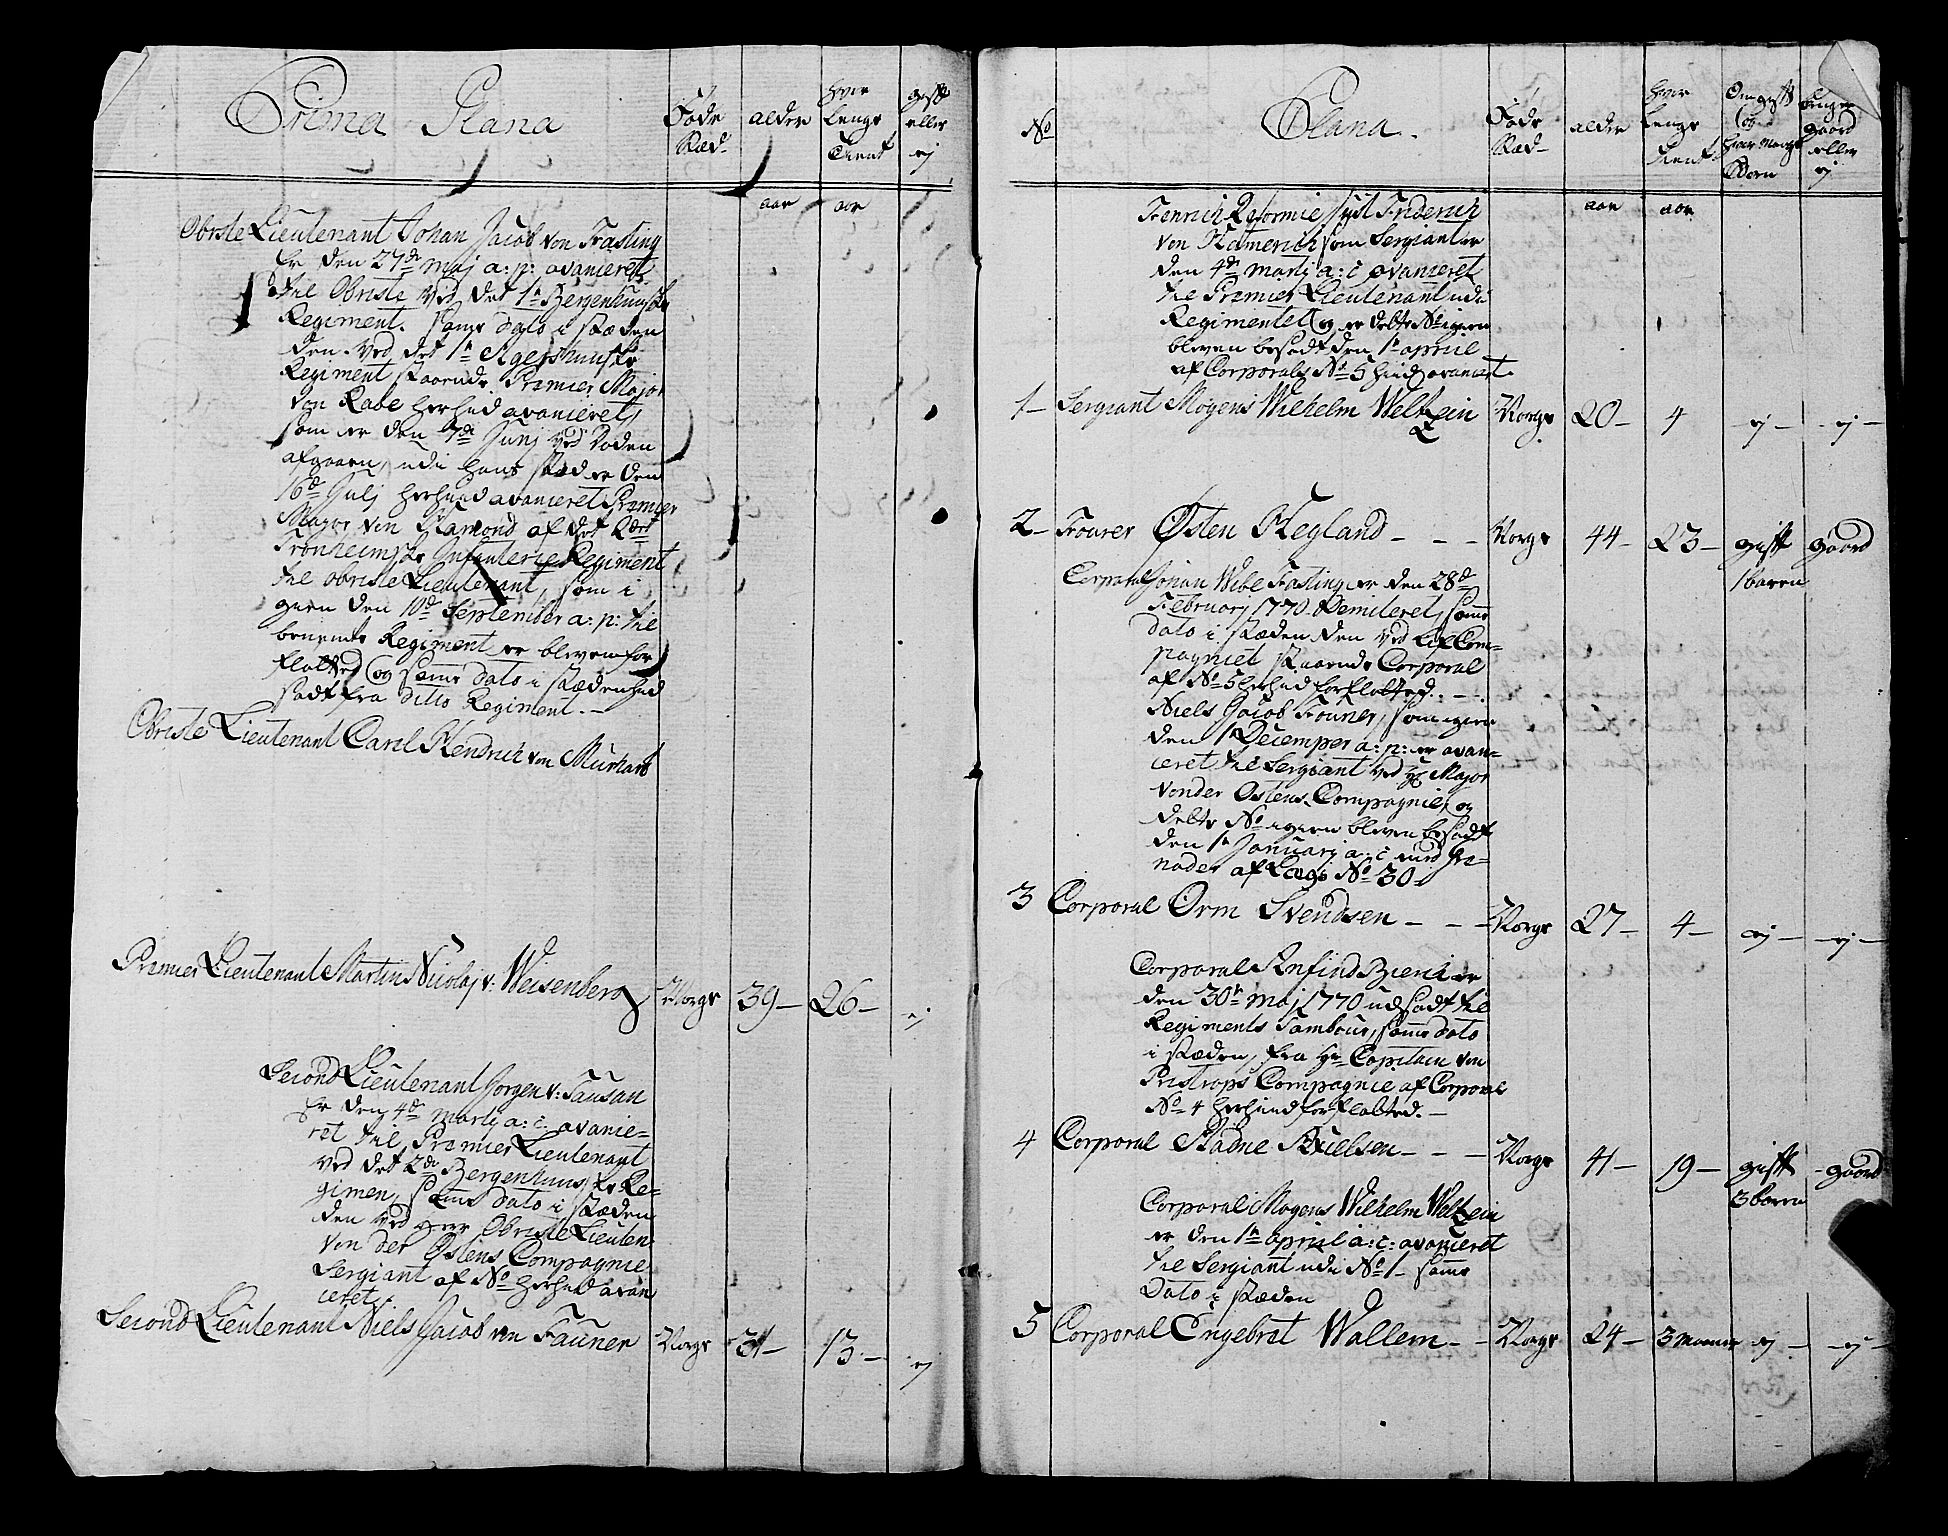 Prima Plana
Føde Stæd
alder
hvor lenge tient
gift eller ej
aar aar
Obriste Lieutenant Johan Jacob von Fasting
Er den 27de Maj a: p: avanceret
til Obriste ved det 1te Bergenhuusske
Regiment. Samme Dato i stæden
den ved det 1te Agershuusske
Regiment staaende Premier Major
von Rabe herhid avanceret,
som er den 7de Junj ved Døden
afgaaen, udi hans stæd er den
16de Julj herhid avanceret Premier
Major von af det 2det
Tronheimske Infanterie Regiment
til Obriste Lieutenant, som i
gien den 10de September a: p: til
benente Regiment er bleven for
flötted og samme dato i stæden hid
sadt fra ditto Regiment. –
Obriste Lieutenant Carel Hendrich von Murhart
Premier Lieutenant Martin Nicolaj v: Weisenberg Norge 39 – 26 – ej
Second Lieutenant Jörgen v: Tausan
Er den 4de Martj a: c: avance-
ret til Premier Lieutenant
ved det 2de Bergenhuuske Re-
gimen, Samme dato i stæden
den ved Herr Obriste Lieuten:
von der Ostens Compagnie
Sergiant af No herhid avan
ceret.
Second Lieutenant Niels Jacob von Fauner Norge 31 – 13 – ej
No
Plana.
Føde Stæd
alder
hvor lenge tient
Om gift og hvor mange Børn
bruger gaard eller ej
aar aar
Fenrich Reformie Friderich
von som Sergiant er
den 4de Martj a: c avanceret
til Premier Lieutenant udi
Regimentet og er dette No igien
bleven besadt den 1te april
af Corporal No 5 hid avanceret.
1 – Sergiant Mogens Wilhelm Weltzein Norge 20 – 4 ej – – ej –
2 – Fourer Østen Hegland – – – Norge 44 – 23 – gift gaard
1 baren
Corporal Johan Wibe Fasting er den 28de
Februarj 1770 Demiteret, samme
dato i stæden den ved Lif Com-
pagniet staaende Corporal
af No 5 herhid forflötted. – –
Niels Jacob Fourer, som igien
den 1te December a: p: er avan-
ceret til Sergiant ved Hr Major
von der Ostens Compagnie, og
dette No igien bleven besadt
den 1te Januarj a: c med Gre-
nader af Laugs No 30
3 Corporal Orm Svendsen – – – Norge 27 – 4 – ej – – ej –
Corporal Anfind Bierch er
den 30te Maj 1770 udsadt til
Regiments Tambour, samme dato
i stæden, fra Hr Capitain von
Pristrops Compagnie af Corporal
No 4 herhid forflötted. –
4 Corporal Stadne Nielsen – – – Norge 41 – 19 – gift – gaard
3 baren
Corporal Mogens Wilhelm Weltzein
er den 1te april a: c: avanceret
til Sergiant udi No 1 – samme
Dato i stæden
5 Corporal Engebret Wallem – – Norge 24 – 3 Maaner ej – – ej –